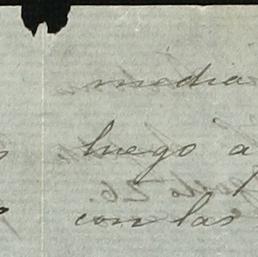 media
luego a
con las